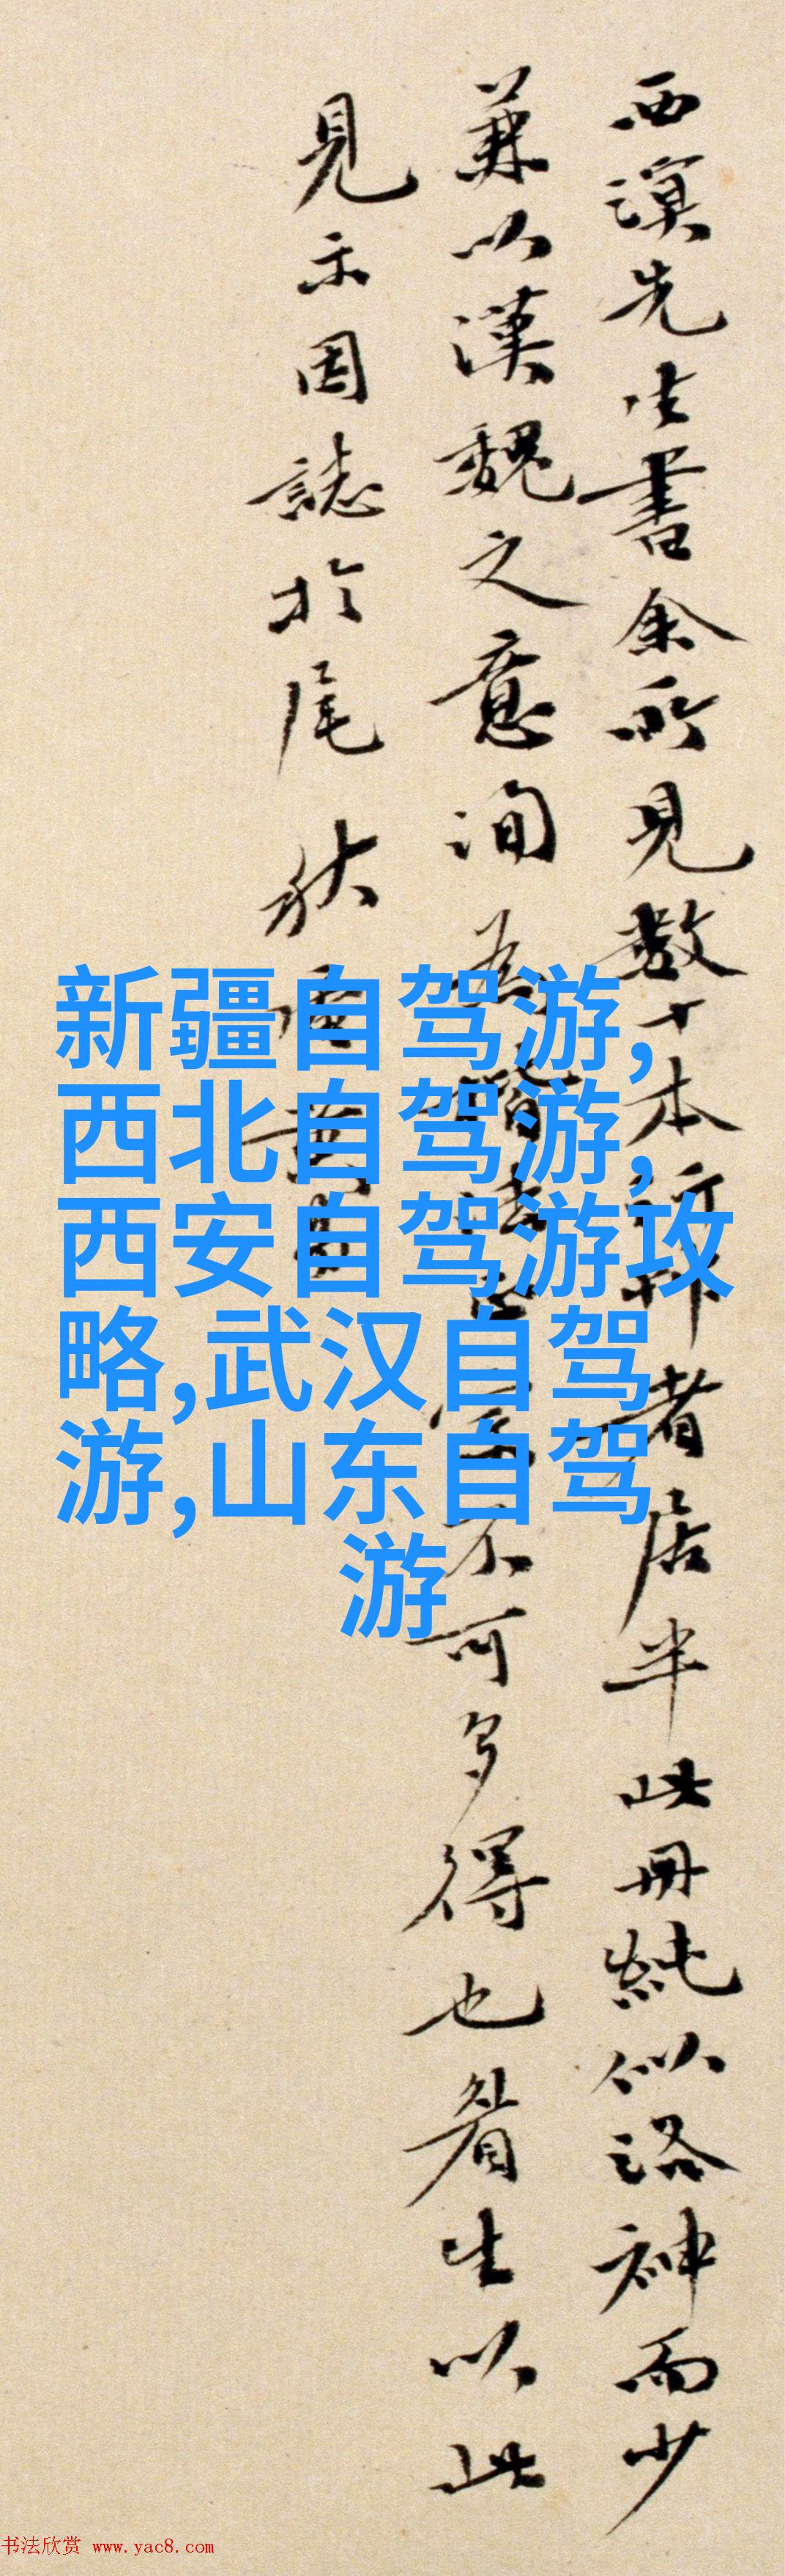 西溟先生書余所見數十本行押者居半此冊純似洛神而少
兼以漢魏之意洵為楷法不可多得也眉生以此
見示因誌於尾
新疆自驾游,
西北自驾游,
西安自驾游攻
略,武汉自驾
游,山东自驾
游
书法欣赏 www.yac8.com